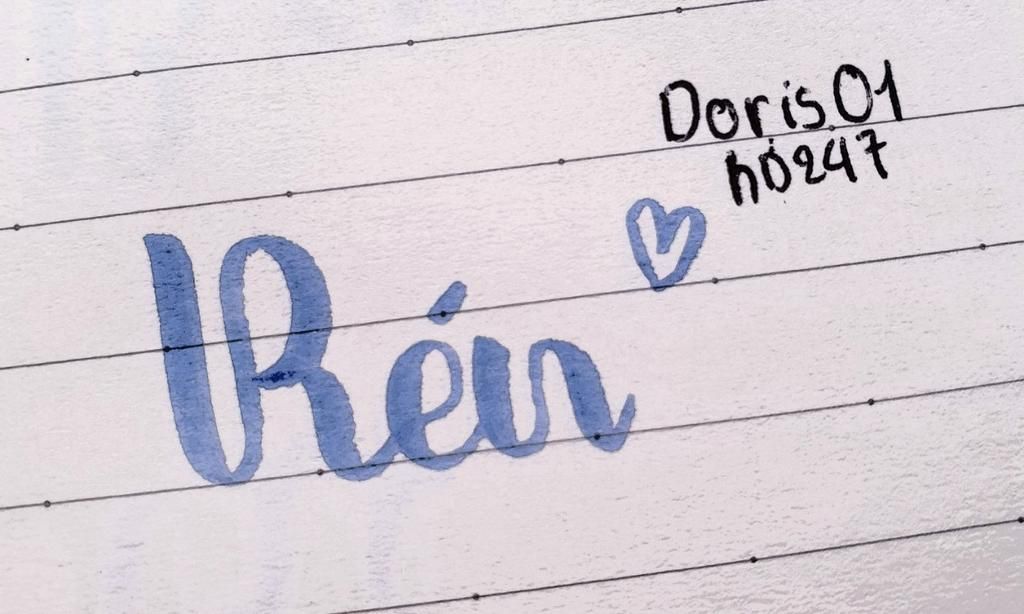 Doris01
h0247
Rén